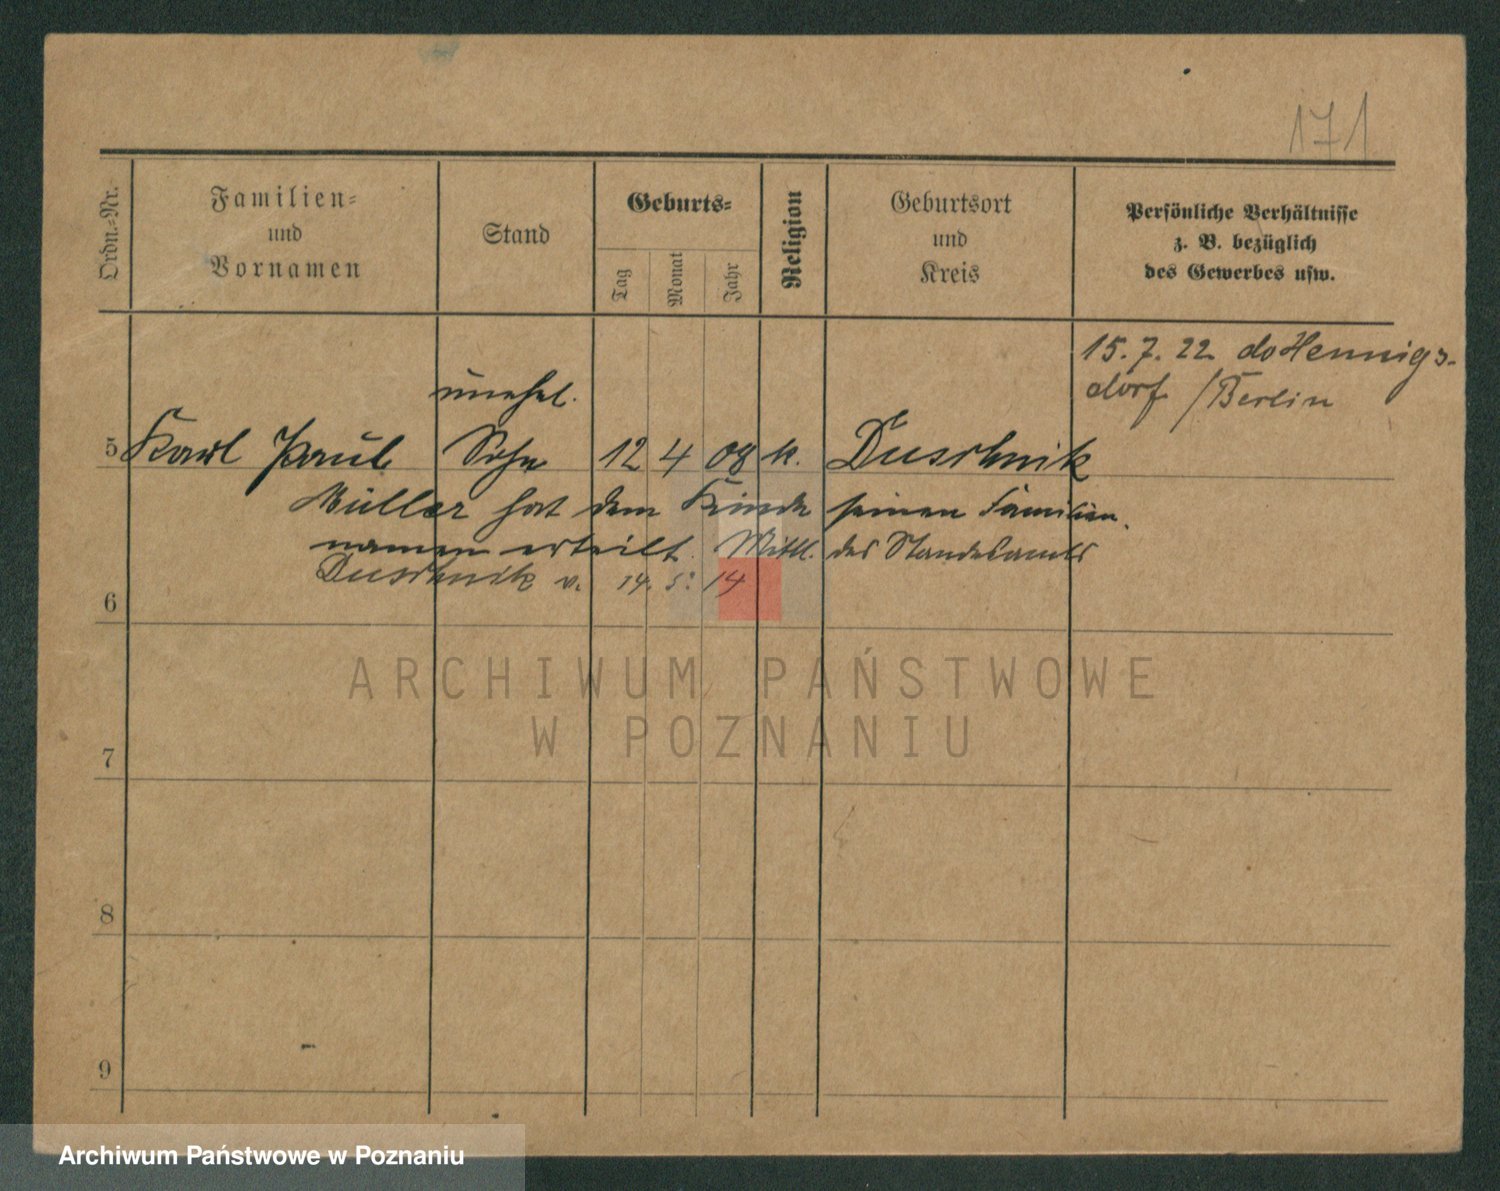 171
Ordn.-Nr.
Familien-
und
Vornamen
Stand
Geburts-
Tag
Monat
Jahr
Religion
Geburtsort
und
Kreis
Persönliche Verhältnisse
z. B. bezüglich
des Gewerbes usw.
15. 7. 22 do Hennigs-
dorf / Berlin
unehel.
5 Karl Paul Sohn 12 4 08 k. Duschnik
Müller hat dem Kinde seinen Familien
namen erteilt. Mittl. des Standesamts
Duschnik v. 14. 5. 14
6
ARCHIWUM PAŃSTWOWE
W POZNANIU
7
8
9
Archiwum Państwowe w Poznaniu